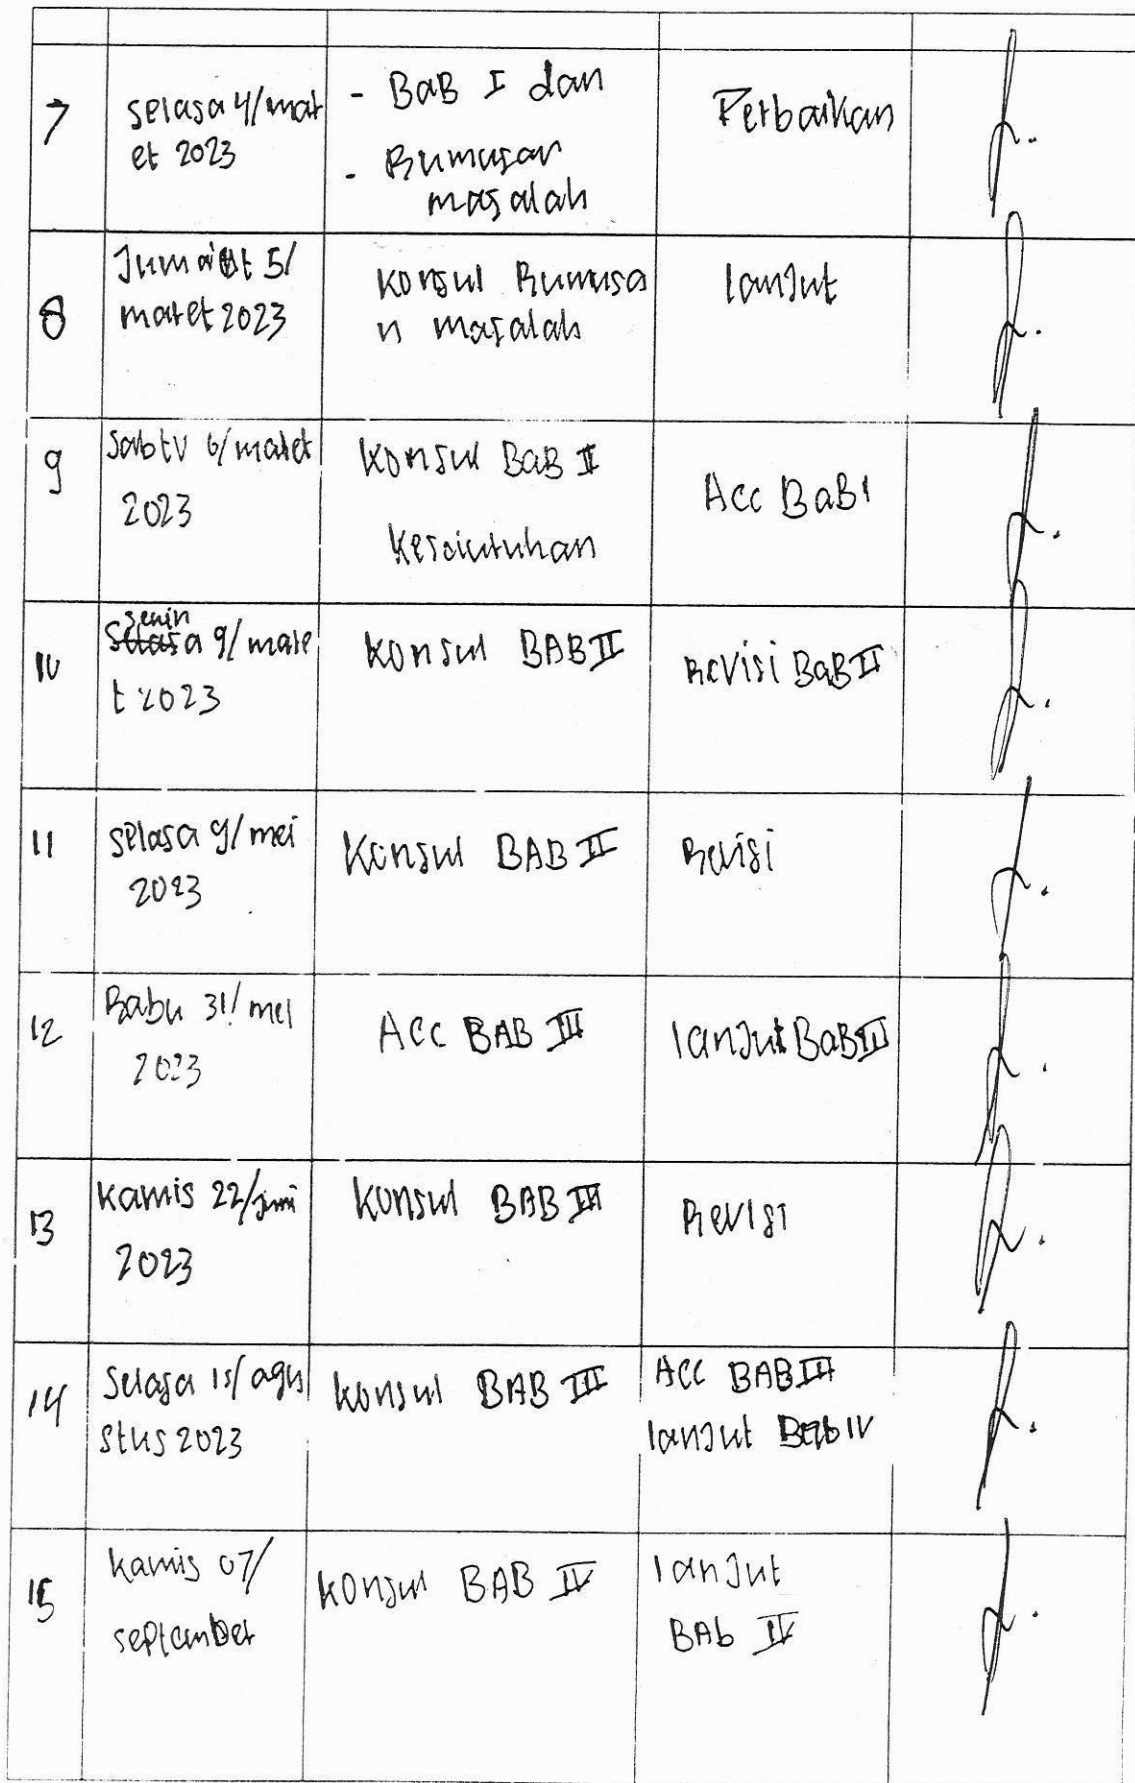 7
selasa 4/mar
et 2023
- BaB I dan
- Rumusan
masalah
Perbaikan
8
Jumaat 5/
maret 2023
konsul Rumusa
n masalah
lanjut
9
Sabtu 6/maret
2023
Konsul BaB II
Keseluruhan
Acc BaB I
10
senin
Selasa 9/mare
t 2023
konsul BAB II
Revisi BaB II
11
selasa 9/mei
2023
Konsul BAB II
Revisi
12
Rabu 31/mei
2023
Acc BAB III
lanjut BaB III
13
kamis 22/juni
2023
konsul BAB III
Revisi
14
Selasa 15/agu
stus 2023
konsul BAB III
Acc BAB III
lanjut Bab IV
15
kamis 07/
september
konsul BAB IV
lanjut
BAb IV